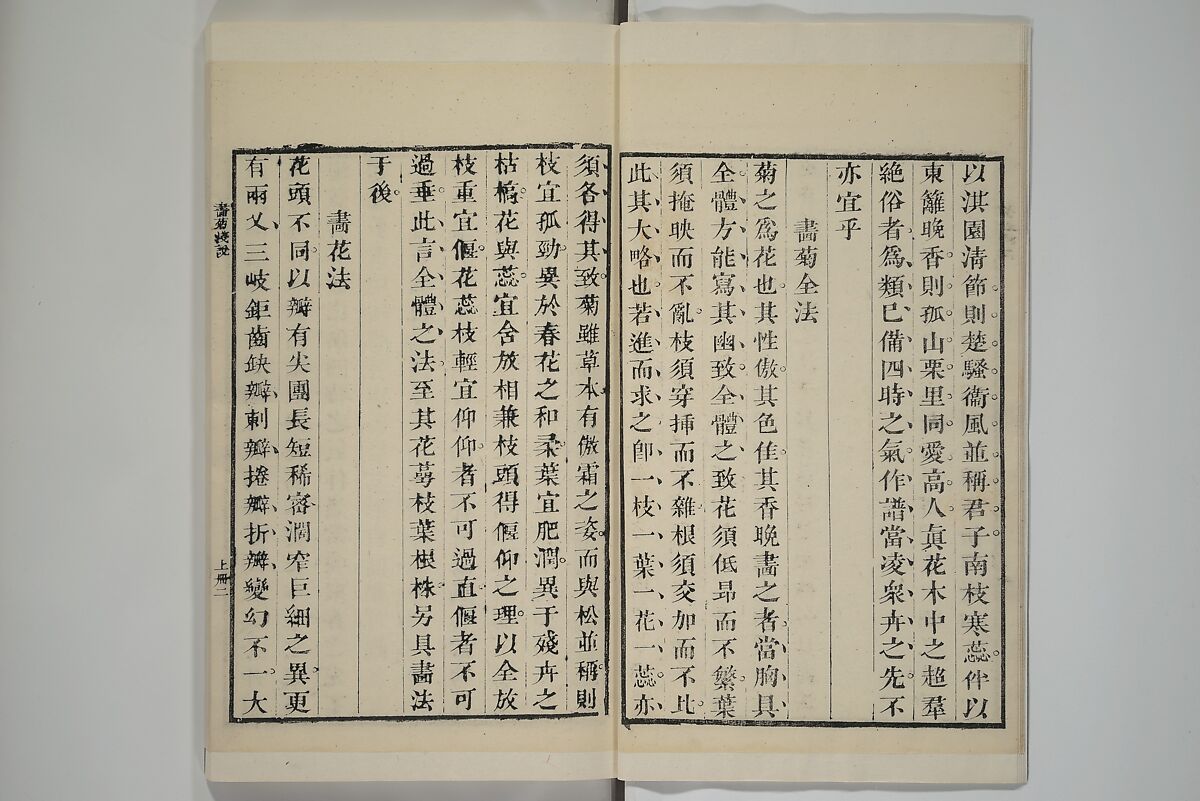 以淇園清節則楚騷衞風並稱君子南枝寒蕊伴以
東籬晚香則孤山栗里同愛高人眞花木中之超羣
絶俗者爲類已備四時之氣作譜當凌衆卉之先不
亦宜乎
畫菊全法
菊之爲花也其性傲其色佳其香晚畫之者當胸具
全體方能寫其幽致全體之致花須低昂而不繁葉
須掩映而不亂枝須穿揷而不雜根須交加而不比
此其大略也若進而求之卽一枝一葉一花一蕊亦
須各得其致菊雖草本有傲霜之姿而與松並稱則
枝宜孤勁異於春花之和柔葉宜肥潤異于殘卉之
枯槁花與蕊宜舍放相兼枝頭得偃仰之理以全放
枝重宜偃花蕊枝輕宜仰仰者不可過直偃者不可
過垂此言全體之法至其花萼枝葉根株另具畫法
于後
畫花法
花頭不同以瓣有尖團長短稀密濶窄巨細之異更
有兩叉三岐鉅齒缺瓣刺瓣捲瓣折瓣變幻不一大
畫菊淺說
上册二